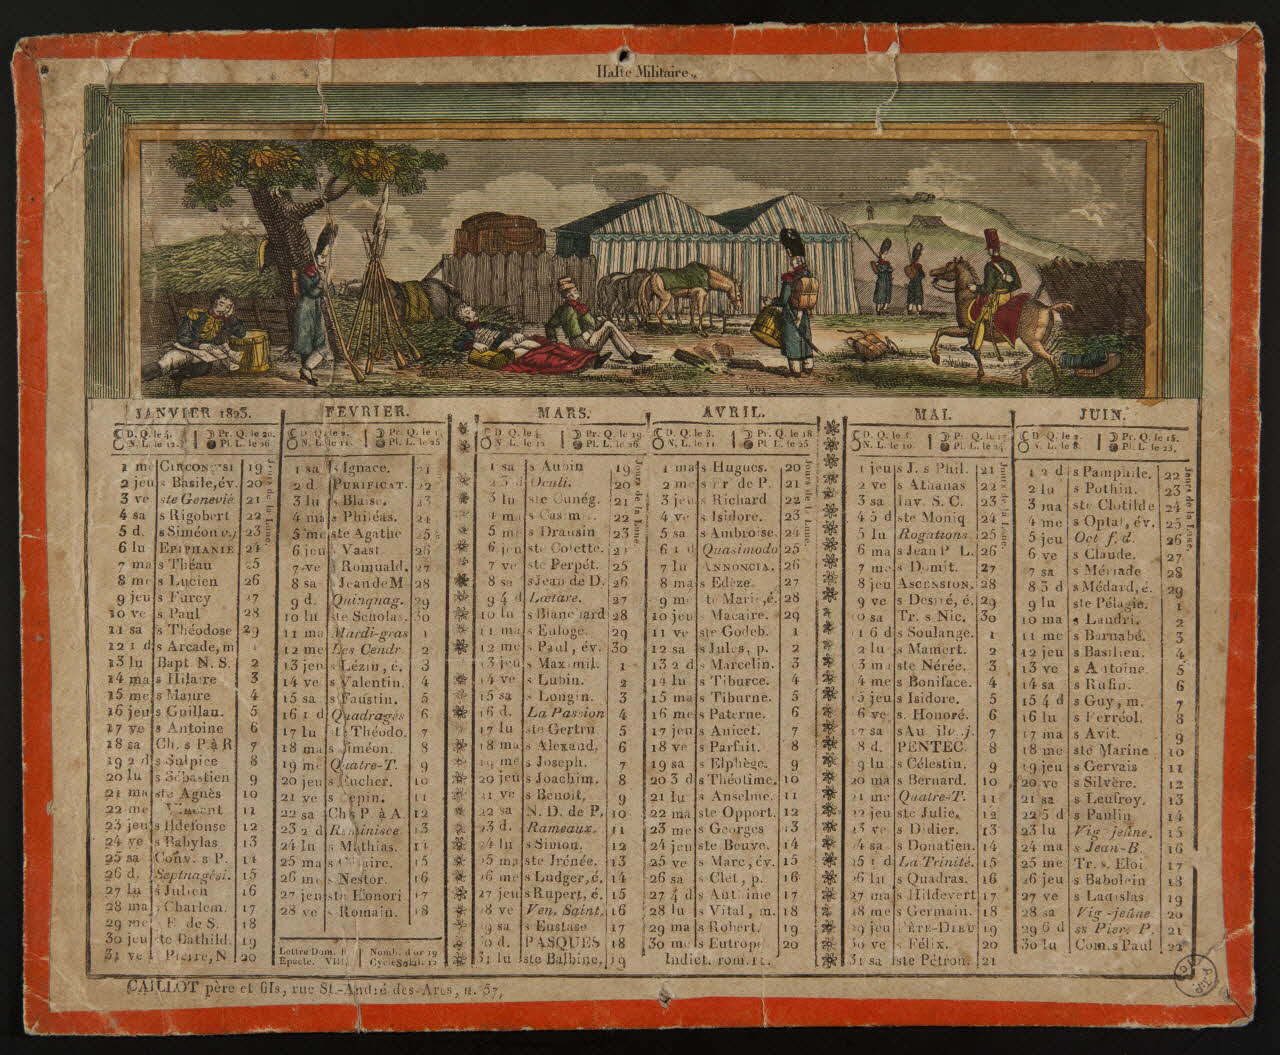 Halte Militaire.
JANVIER 1823.
D. Q. le 4. Pr. Q. le 20.
N. L. le 12. Pl. L. le 26.
1 me CIRCONCISI 19
2 jeu s Basile, év. 20
3 ve ste Geneviè 21
4 sa s Rigobert 22
5 d. s Siméon 23
6 lu EPIPHANIE 24
7 ma s Théau 25
8 me s Lucien 26
9 jeu s Furcy 27
10 ve s Paul 28
11 sa s Théodose 29
12 1 d s Arcade, m 1
13 lu Bapt. N. S. 2
14 ma s Hilaire 3
15 me s Maure 4
16 jeu s Guillau. 5
17 ve s Antoine 6
18 sa Ch. s P à R 7
19 2 d s Sulpice 8
20 lu s Sébastien 9
21 ma ste Agnès 10
22 me s Vincent 11
23 jeu s Ildefonse 12
24 ve s Babylas 13
25 sa Conv. s P. 14
26 d. Septuagési. 15
27 lu s Julien 16
28 ma s Charlem. 17
29 me s F. de S. 18
30 jeu ste Bathild. 19
31 ve s Pierre, N 20
Jours de la Lune.
FEVRIER.
D. Q. le 2.
N. L. le 11. Pl. L. le 25
1 sa s Ignace. 21
2 d. PURIFICAT. 22
3 lu s Blaise. 23
4 ma s Philéas. 24
5 me ste Agathe 25
6 jeu s Vaast 26
7 ve s Romuald. 27
8 sa s Jean de M 28
9 d. Quinquag. 29
10 lu ste Scholas. 30
11 ma Mardi-gras 1
12 me Les Cendr. 2
13 jeu s Lézin, é. 3
14 ve s Valentin. 4
15 sa s Faustin. 5
16 1 d Quadragés 6
17 lu ste Théodo. 7
18 ma s Siméon. 8
19 me Quatre-T. 9
20 jeu s Eucher. 10
21 ve s Pepin. 11
22 sa Ch s P. à A. 12
23 2 d Reminisce 13
24 lu s Mathias. 14
25 ma 15
26 me s Nestor. 16
27 jeu ste Honori 17
28 ve s Romain. 18
Lettre Dom. E Nomb. d'or 19
Epacte. VIII. Cycle Solai. 12
MARS.
D. Q. le 4. Pr. Q. le 19
N. L. le 12 Pl. L. le 26
1 sa s Aubin 19
2 3 d Oculi. 20
3 lu ste Cunég. 21
4 ma s Casim. 22
5 me s Drausin 23
6 jeu ste Colette. 24
7 ve ste Perpét. 25
8 sa s Jean de D. 26
9 4 d Lœtare. 27
10 lu s Blanchard 28
11 ma s Euloge. 29
12 me s Paul, év. 30
13 jeu s Maximil. 1
14 ve s Lubin. 2
15 sa s Longin. 3
16 d. La Passion 4
17 lu ste Gertru. 5
18 ma s Alexand. 6
19 me s Joseph. 7
20 jeu s Joachim. 8
21 ve s Benoit. 9
22 sa N. D. de P. 10
23 d. Rameaux. 11
24 lu s Simon. 12
25 ma ste Irénée. 13
26 me s Ludger, é. 14
27 jeu s Rupert, é. 15
28 ve Ven. Saint. 16
29 sa s Eustase 17
30 d. PASQUES 18
31 lu ste Balbine. 19
Jours de la Lune.
AVRIL.
D. Q. le 3. Pr. Q. le 18
N. L. le 11 Pl. L. le 25
1 ma s Hugues. 20
2 me s Fr de P. 21
3 jeu s Richard 22
4 ve s Isidore. 23
5 sa s Ambroise 24
6 1 d Quasimodo 25
7 lu ANNONCIA. 26
8 ma s Edèze. 27
9 me ste Marie, é. 28
10 jeu s Macaire. 29
11 ve ste Godeb. 1
12 sa s Jules, p. 2
13 2 d s Marcelin. 3
14 lu s Tiburce. 4
15 ma s Tiburne. 5
16 me s Paterne. 6
17 jeu s Anicet. 7
18 ve s Parfait. 8
19 sa s Elphège. 9
20 3 d s Théotime. 10
21 lu s Anselme. 11
22 ma ste Opport. 12
23 me s Georges 13
24 jeu ste Beuve. 14
25 ve s Marc, év. 15
26 sa s Clet, p. 16
27 4 d s Antoine 17
28 lu s Vital, m. 18
29 ma s Robert. 19
30 me s Eutrope 20
Indict. rom. 11.
Jours de la Lune.
MAI.
D. Q. le 3. Pr. Q. le 17
N. L. le 10. Pl. L. le 24.
1 jeu s J. s Phil. 21
2 ve s Athanas 22
3 sa Inv. S. C. 23
4 5 d ste Moniq 24
5 lu Rogations 25
6 ma s Jean P L. 26
7 me s Domit. 27
8 jeu ASCENSION. 28
9 ve s Desiré, é. 29
10 sa Tr. s Nic. 30
11 6 d s Soulange. 1
12 lu s Mamert. 2
13 ma ste Nérée. 3
14 me s Boniface. 4
15 jeu s Isidore. 5
16 ve s. Honoré. 6
17 sa 7
18 d. PENTEC. 8
19 lu s Célestin. 9
20 ma s Bernard. 10
21 me Quatre-T. 11
22 jeu ste Julie. 12
23 ve s Didier. 13
24 sa s Donatien. 14
25 1 d La Trinité. 15
26 lu s Quadras. 16
27 ma s Hildevert 17
28 me s Germain. 18
29 jeu FÊTE-DIEU 19
30 ve s Félix. 20
31 sa ste Pétron. 21
Jours de la Lune.
JUIN.
D. Q. le 2. Pr. Q. le 15.
N. L. le 8. Pl. L. le 23.
1 2 d s Pamphile. 22
2 lu s Pothin. 23
3 ma ste Clotilde 24
4 me s Optat, év. 25
5 jeu Oct f. d. 26
6 ve s Claude. 27
7 sa s Mériade 28
8 3 d s Médard, é. 29
9 lu ste Pélagie. 1
10 ma s Landri. 2
11 me s Barnabé. 3
12 jeu s Basilien. 4
13 ve s Antoine 5
14 sa s Rufin. 6
15 4 d s Guy, m. 7
16 lu s Ferréol. 8
17 ma s Avit. 9
18 me ste Marine 10
19 jeu s Gervais 11
20 ve s Silvère. 12
21 sa s Leufroy. 13
22 5 d s Paulin 14
23 lu Vig-jeûne. 15
24 ma s Jean-B. 16
25 me Tr. s. Eloi 17
26 jeu s Babolein 18
27 ve s Ladislas 19
28 sa Vig-jeûne 20
29 6 d ss Pier. P. 21
30 lu Com. s Paul 22
Jours de la Lune.
CAILLOT père et fils, rue St.-André des-Arts, n. 57,
A.T.P.